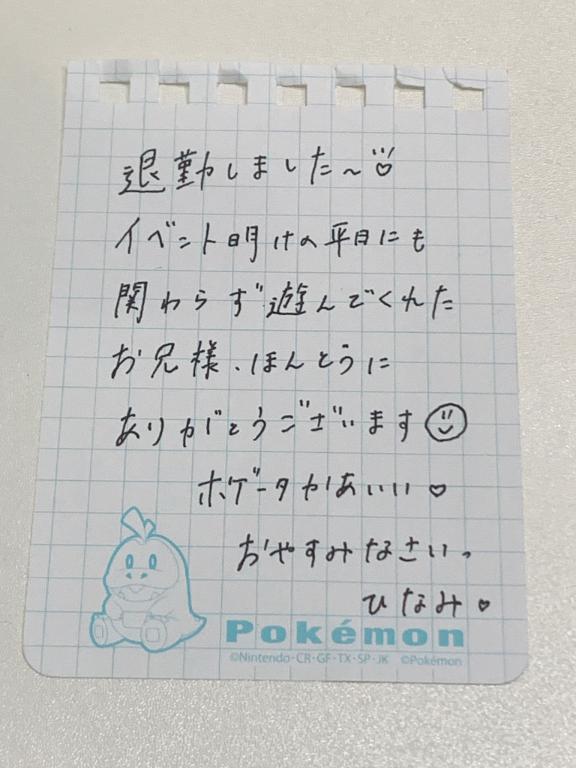 退勤しました〜
イベント明けの平日にも
関わらず遊んでくれた
お兄様、ほんとうに
ありがとうございます
ホゲータかあいい♡
おやすみなさいっ
ひなみ♡
Pokémon
©Nintendo・CR・GF・TX・SP・JK ©Pokémon